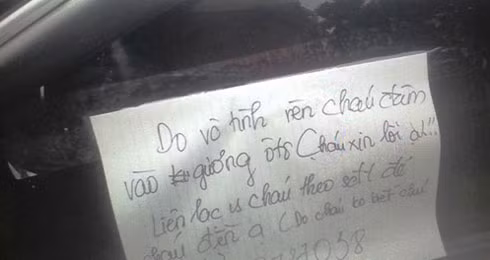 Do vô tình nên cháu đâm
vào gương ôtô Cháu xin lỗi ạ!!..
Liên lạc vs cháu theo sđt để
cháu đền ạ (Do cháu ko biết
038